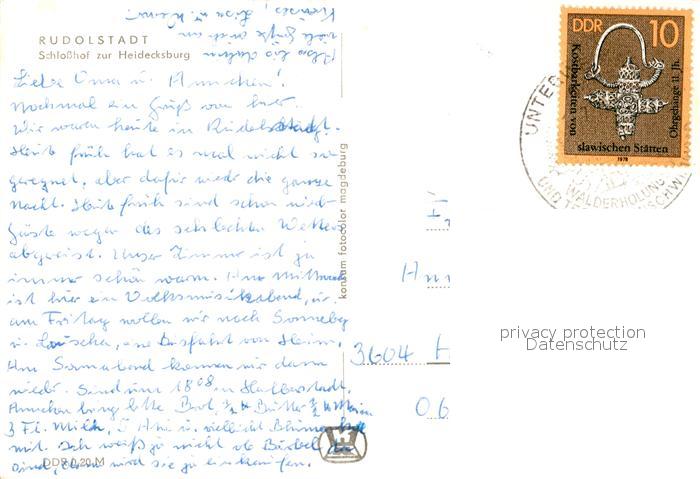 RUDOLSTADT
Schloßhof zur Heidecksburg
Liebe Oma u. Annchen!
Nochmal ein Gruß von hier.
Wir waren heute in Rudolstadt.
Heute früh hat es mal nicht so
geregnet, aber dafür wieder die ganze
Nacht. Heute früh sind schon wieder
Gäste wegen des schlechten Wetters
abgereist. Unser Zimmer ist ja
immer schön warm. Am Mittwoch
ist hier ein Volksmusikabend, u.
am Freitag wollen wir nach Sonneberg
u. Lauscha, eine Busfahrt vom Heim.
Am Sonnabend kommen wir dann
wieder. Sind um 18⁰⁸ in Halberstadt.
Annchen bring bitte Brot, ½ Butter
3 Fl. Milch, u. vielleicht Blumen
mit. Ich weiß ja nicht ob Bärbel
sind, dann wird sie ja einkaufen.
Also bis dahin
viele Grüße
konsum fotocolor magdeburg
DDR 0,20 M
DDR 10
Kostbarkeiten von
slawischen Stätten
Ohrgehänge 11. Jh.
1978
UNTER
WALDERHOLUNG
UND
3604 H
06
privacy protection
Datenschutz